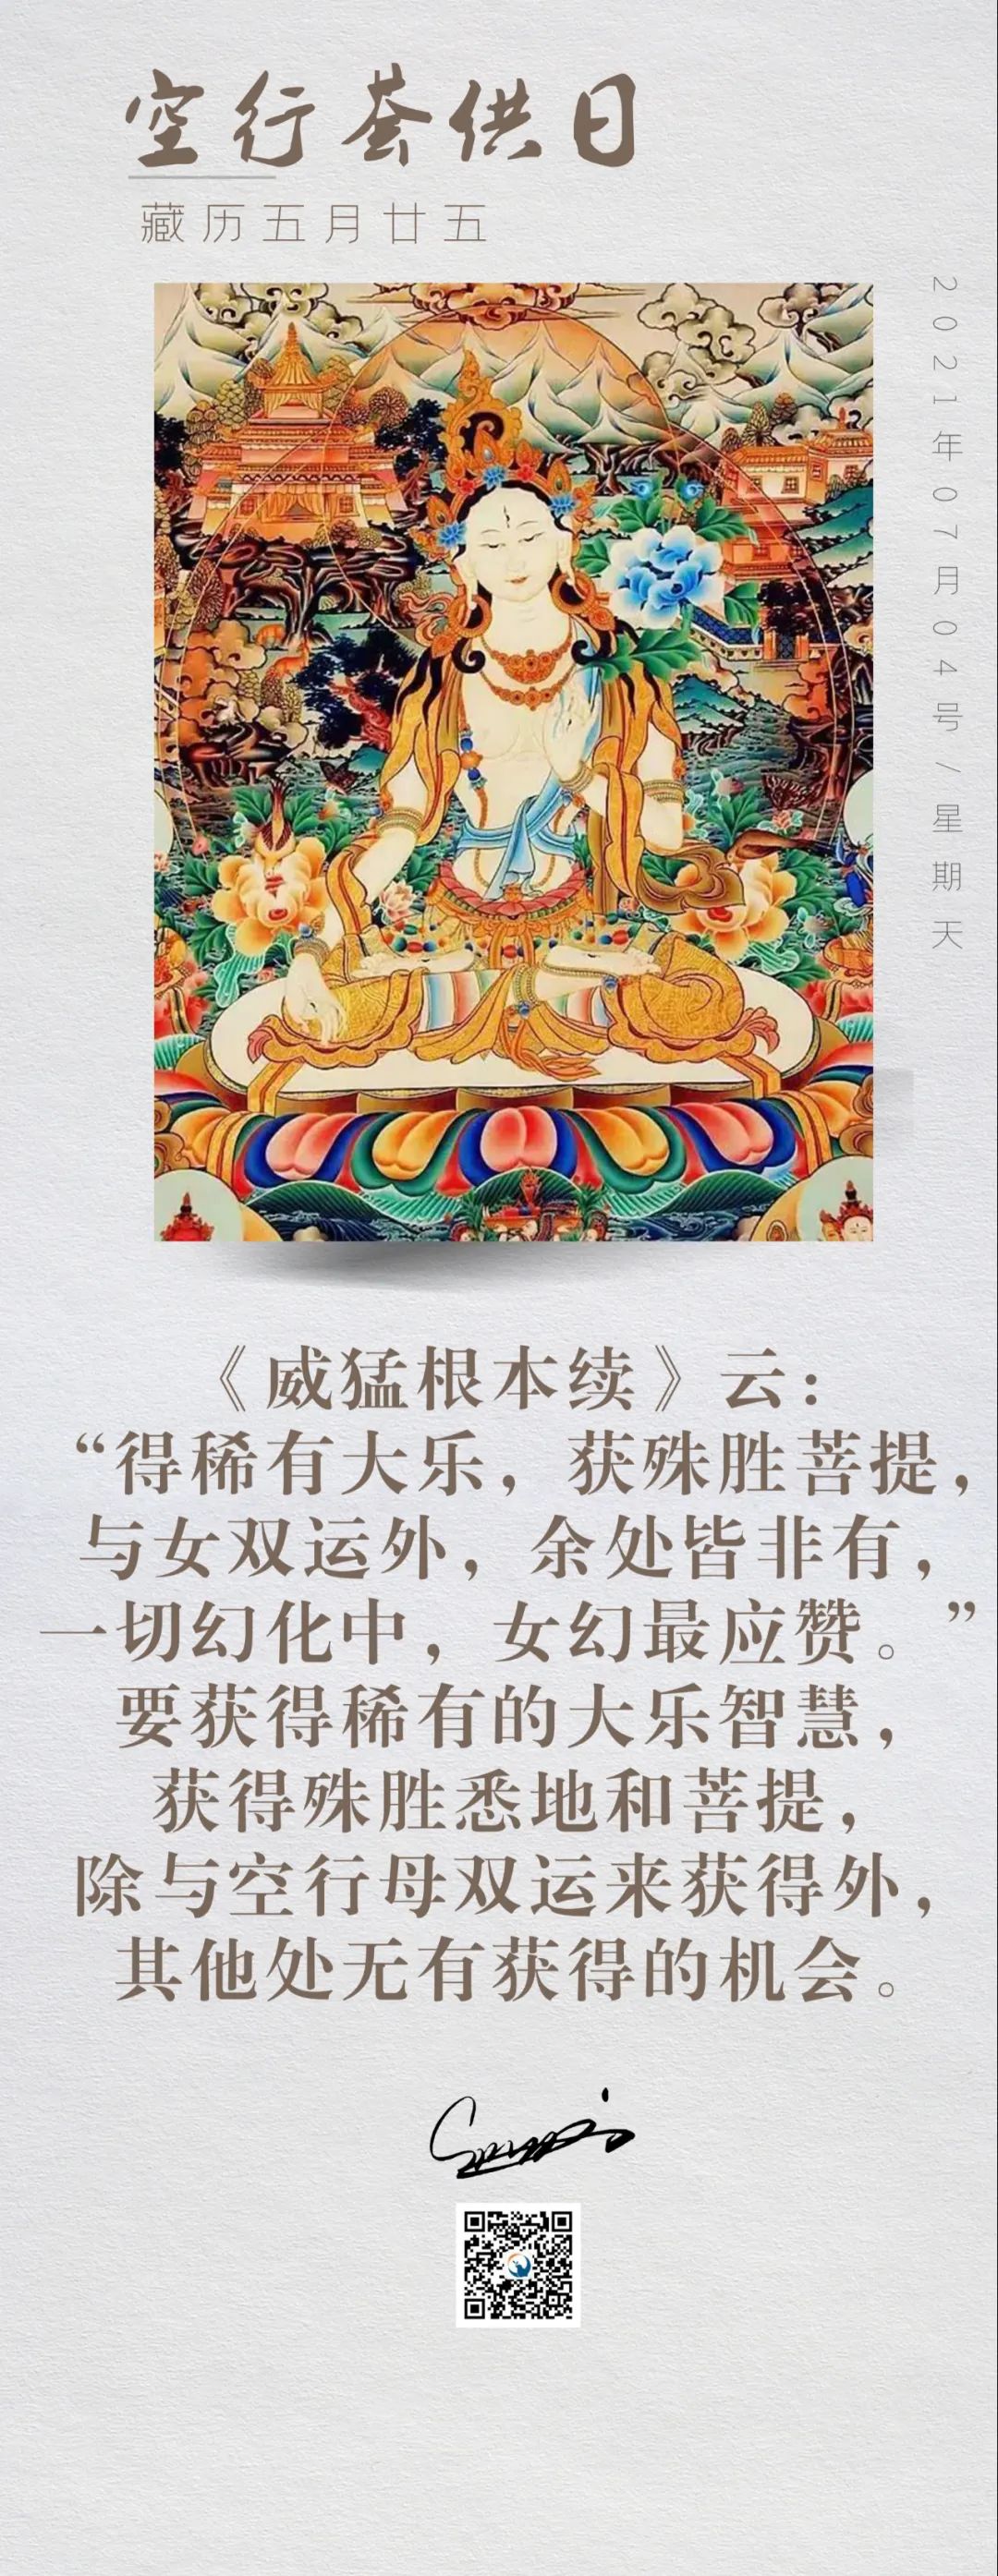 空行荟供日
藏历五月廿五
2021年07月04号/星期天
《威猛根本续》云：
“得稀有大乐，获殊胜菩提，
与女双运外，余处皆非有，
一切幻化中，女幻最应赞。”
要获得稀有的大乐智慧，
获得殊胜悉地和菩提，
除与空行母双运来获得外，
其他处无有获得的机会。